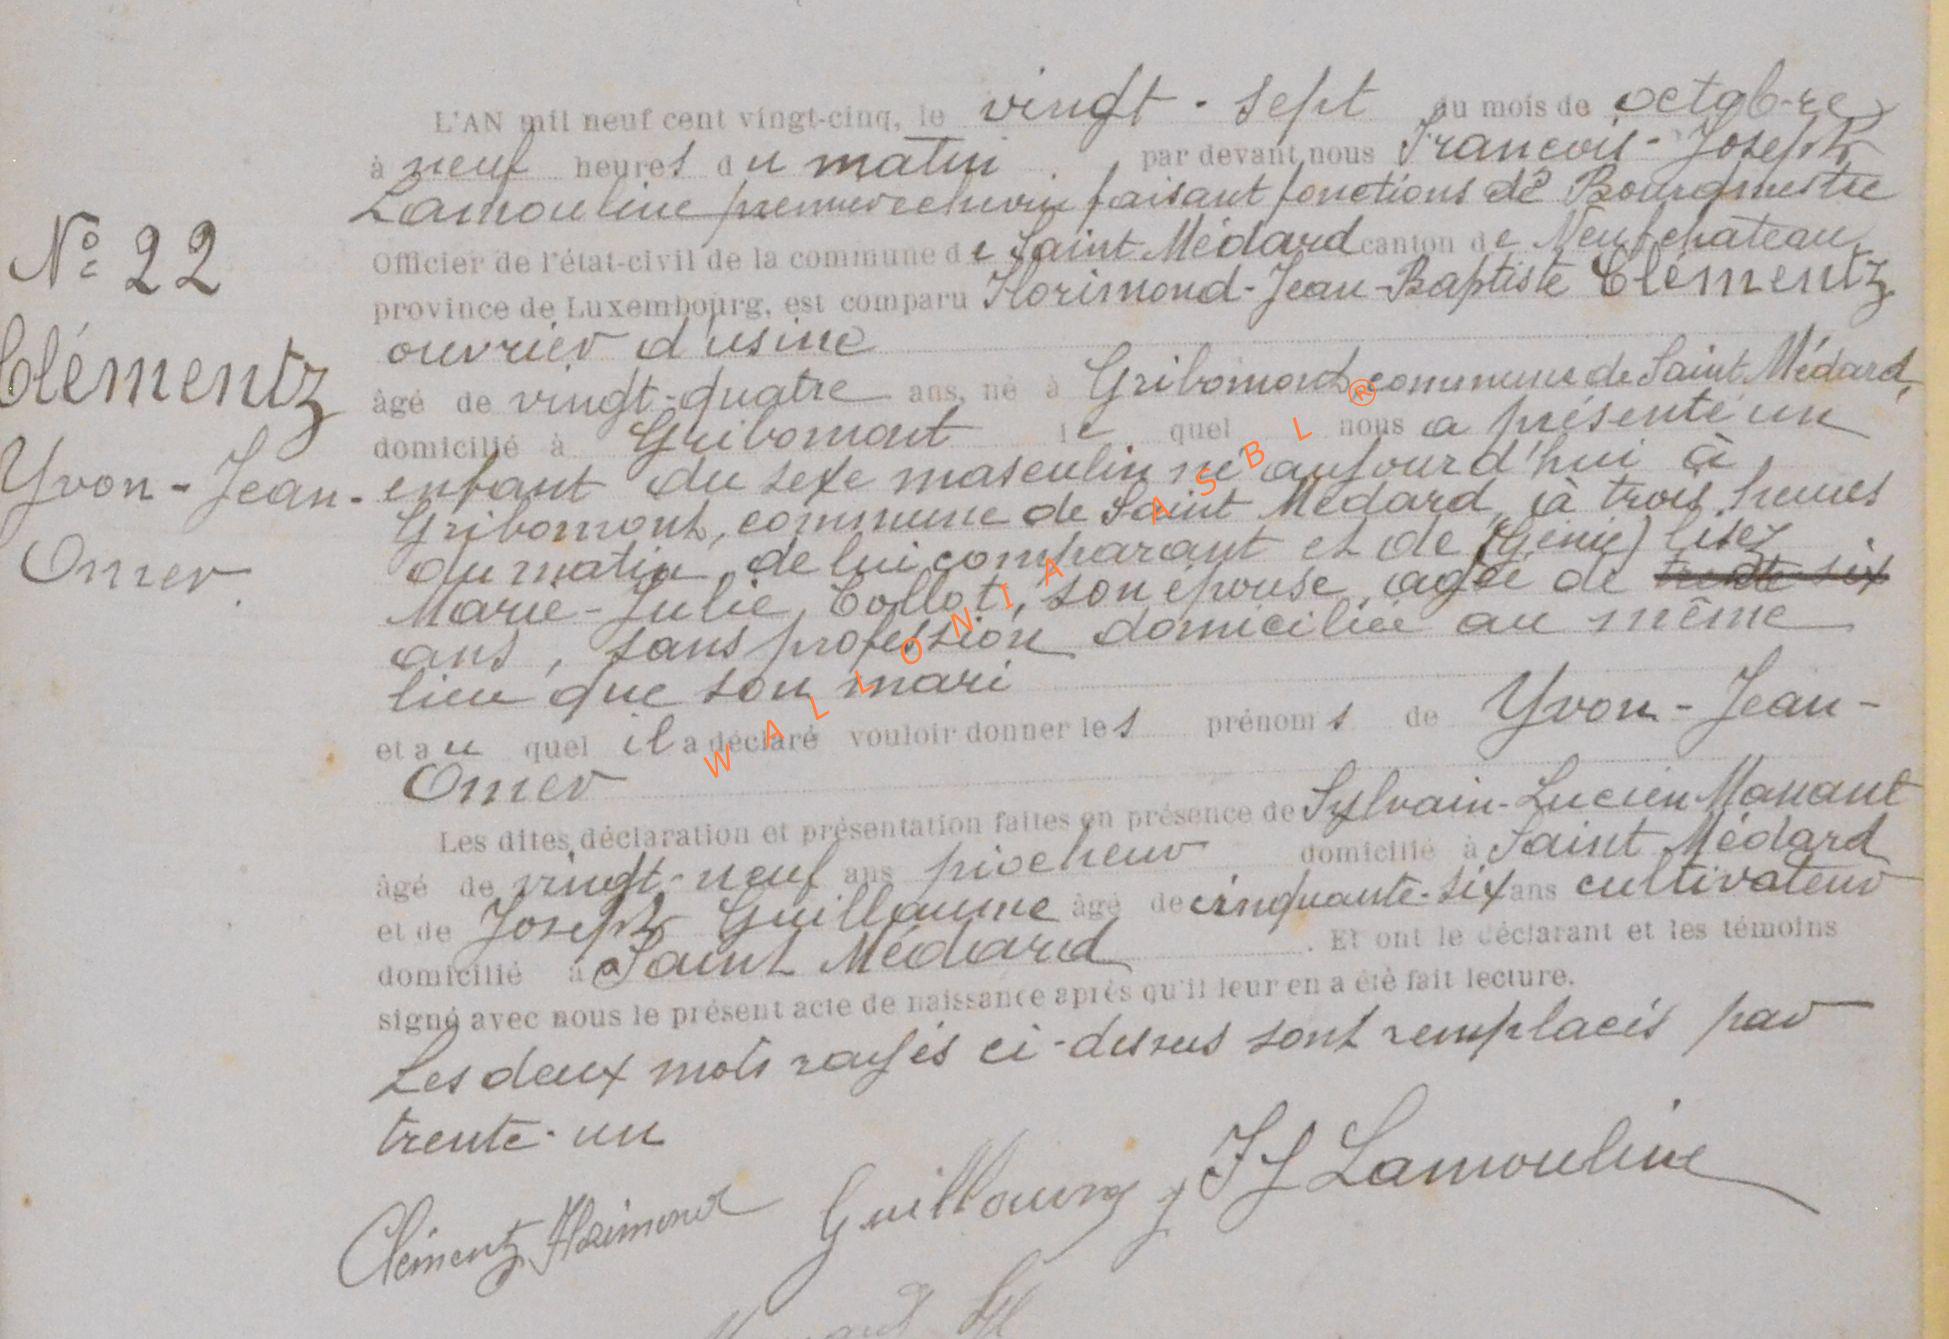 L'AN mil neuf cent vingt-cinq, le vingt-sept du mois de octobre
à neuf heures du matin, par devant nous Francois-Joseph
Lamouline premier echevin faisant fonctions de Bourgmestre
Officier de l'état-civil de la commune de Saint Médard canton de Neufchateau
province de Luxembourg, est comparu Florimond-Jean-Baptiste Clémentz
ouvrier d'usine
âgé de vingt-quatre ans, né à Gribomont, commune de Saint Médard,
domicilié à Gribomont lequel nous a présenté un
enfant du sexe masculin né aujourd'hui à
Gribomont, commune de Saint Médard, à trois heures
du matin, de lui comparant et de (Génie) lisez
Marie-Julie, Collot, son épouse, agée de trente six
ans, sans profession domiciliée au même
lieu que son mari
et auquel il a déclaré vouloir donner les prénoms de Yvon-Jean-
Omer
Les dites déclaration et présentation faites en présence de Sylvain-Lucien Manant
âgé de vingt-neuf ans piocheur domicilié à Saint Médard
et de Joseph Guillaume âgé de cinquante-six ans cultivateur
domicilié à Saint Médard. Et ont le déclarant et les témoins
signé avec nous le présent acte de naissance après qu'il leur en a été fait lecture.
Les deux mots rayés ci-dessus sont remplacés par
trente-un
Clémentz Florimond Guillaume J FJ Lamouline
Nº 22
Clémentz
Yvon-Jean-
Omer.
WALLONIA ASBL ®